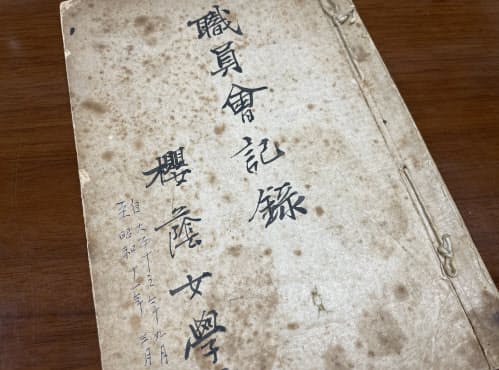 職員會記錄
櫻蔭女學
自大正十五年九月
至昭和十一年三月